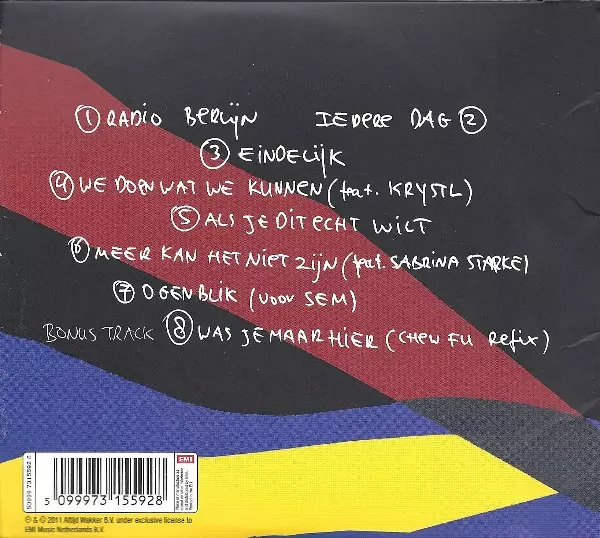 ① RADIO BERLIJN IEDERE DAG ②
③ EINDELIJK
④ WE DOEN WAT WE KUNNEN (feat. KRYSTL)
⑤ ALS JE DIT ECHT WILT
⑥ MEER KAN HET NIET ZIJN (feat. SABRINA STARKE)
⑦ OGENBLIK (voor SEM)
BONUS TRACK ⑧ WAS JE MAAR HIER (CHEW FU Refix)
EMI
5 099973 155928
℗ & © 2011 Altijd Wakker B.V. under exclusive license to
EMI Music Netherlands B.V.